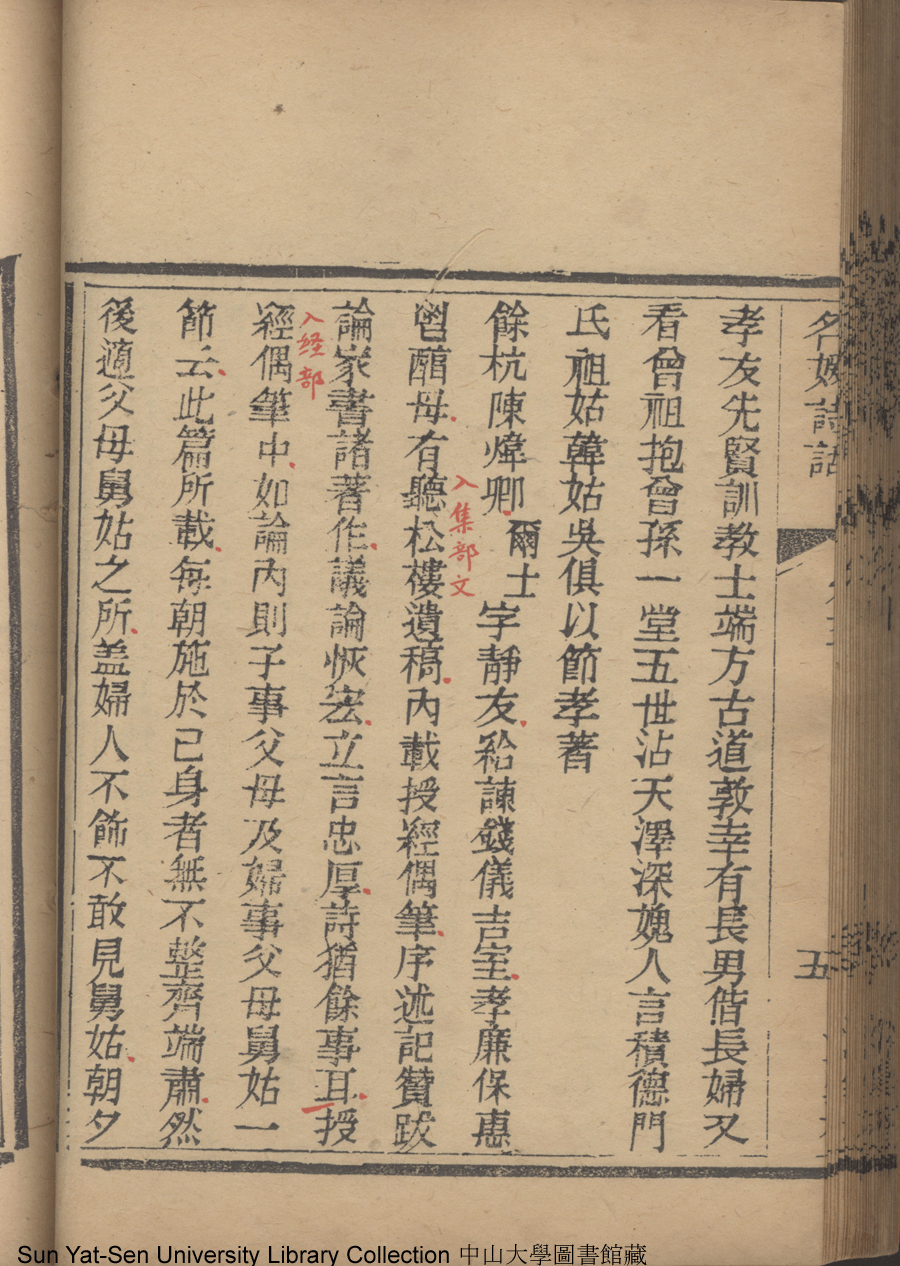 名媛詩話
五
孝友先賢訓教士端方古道敦幸有長男偕長婦又
看曾祖抱曾孫一堂五世沾天澤深媿人言積德門
氏祖姑韓姑吳俱以節孝著
餘杭陳煒卿爾士字靜友給諫錢儀吉室孝廉保惠
母有聽松樓遺稿內載授經偶筆序述記贊跋
入集部文
論家書諸著作議論恢宏立言忠厚詩猶餘事耳授
入経部
經偶筆中如論內則子事父母及婦事父母舅姑一
節云此篇所載每朝施於已身者無不整齊端肅然
後適父母舅姑之所盖婦人不飾不敢見舅姑朝夕
Sun Yat-Sen University Library Collection 中山大學圖書館藏